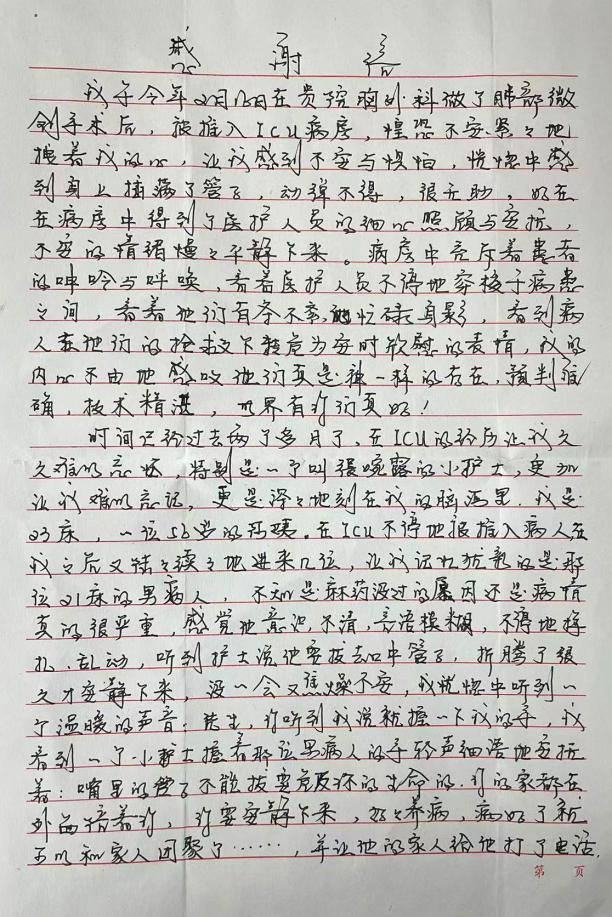 感谢信
我于今年2月15日在贵院胸外科做了肺部微
创手术后，被推入ICU病房，惶恐不安紧々地
揪着我的心，让我感到不安与惧怕，恍惚中感
到身上插满了管子，动弹不得，很无助，好在
在病房中得到了医护人员的细心照顾与安抚，
不安的情绪慢々平静下来。病房中充斥着患者
的呻吟与呼唤，看着医护人员不停地穿梭于病患
之间，看着他们有条不紊地忙碌身影，看到病
人在他们的抢救下转危为安时欣慰的表情，我的
内心不由地感叹他们真是神一样的存在，预判准
确，技术精湛，世界有你们真好！
时间已经过去两个多月了，在ICU的经历让我久
久难以忘怀 特别是一个叫张婉露的小护士，更加
让我难以忘记，更是深々地刻在我的脑海里，我是
23床，一位56岁的阿姨。在ICU不停地被推入病人在
我々后又陆々续々地进来几位，让我记忆犹新的是那
位21床的男病人，不知是麻药没过的原因还是病情
真的很严重，感觉他意识不清，言语模糊，不停地挣
扎、乱动，听到护士说他要拔去口中管子，折腾了很
久才安静下来，没一会又焦燥不安，我恍惚中听到一
个温暖的声音：先生，你听到我说就握一下我的手，我
看到一个小护士握着那位男病人的手轻声细语地安抚
着：嘴里的管子不能拔要危及你的生命的，你的家都在
外面陪着你，你要安静下来，好々养病，病好了就
可以和家人团聚了……，并让他的家人给他打了电话，
第 页